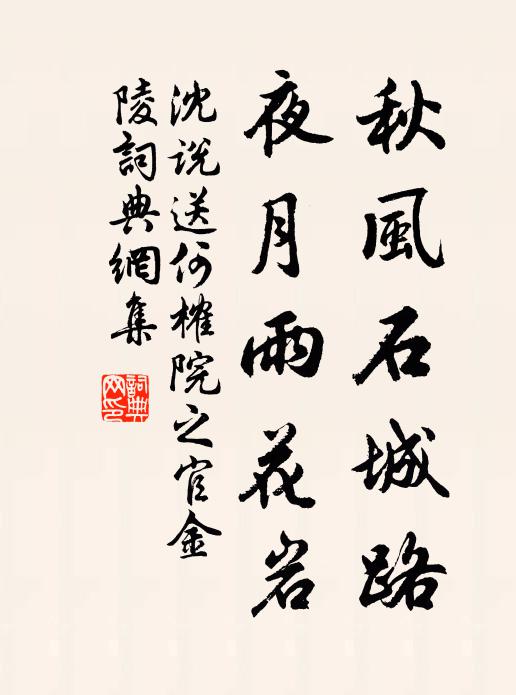 秋風石城路
夜月雨花岩
沈說送何榷院之官金
陵詞典網集
詞典网印